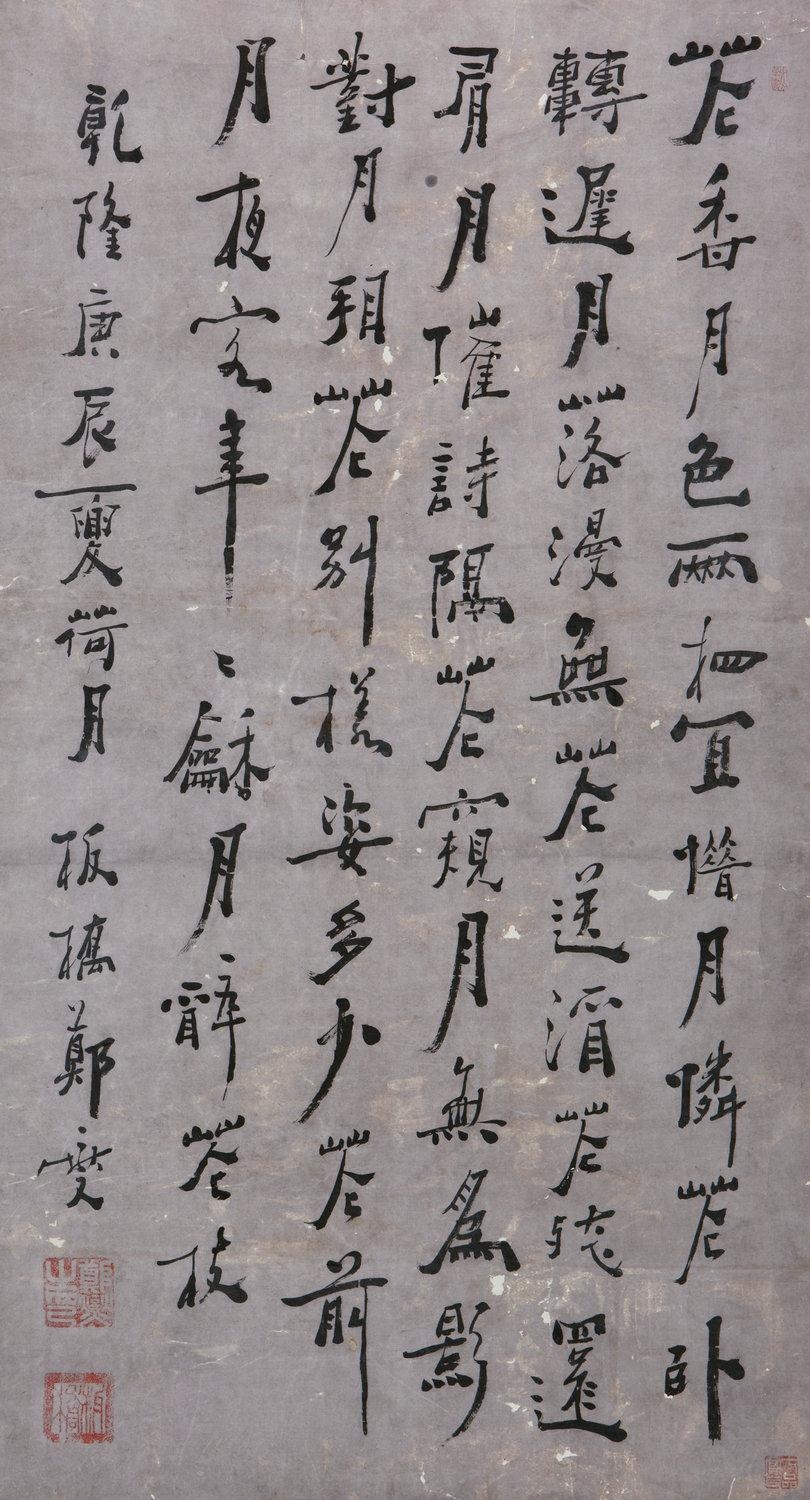 花香月色兩相宜惜月憐花臥
轉遲月落漫無花送酒花殘還
有月催詩隔花窺月無為影
對月相花別樣姿多少花前
月夜客年〻龢月醉花枝
乾隆庚辰夏荷月 板橋鄭燮
鄭燮之印